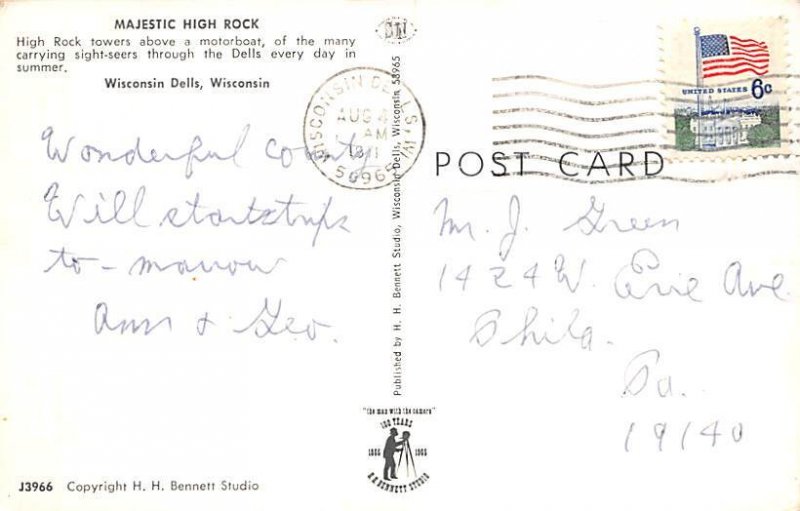 MAJESTIC HIGH ROCK
High Rock towers above a motorboat, of the many
carrying sight-seers through the Dells every day in
summer.
Wisconsin Dells, Wisconsin
Wonderful country
Will start trip
to-morrow
Ann & Geo.
J3966 Copyright H. H. Bennett Studio
Published by H. H. Bennett Studio, Wisconsin Dells, Wisconsin 53965
"the man with the camera"
100 YEARS
1865 1965
H.H. BENNETT STUDIO
WISCONSIN DELLS, WI
AUG
AM
53965
UNITED STATES 6c
POST CARD
Mr. J. Green
1424 W. Erie Ave.
Phila.
Pa.
19140